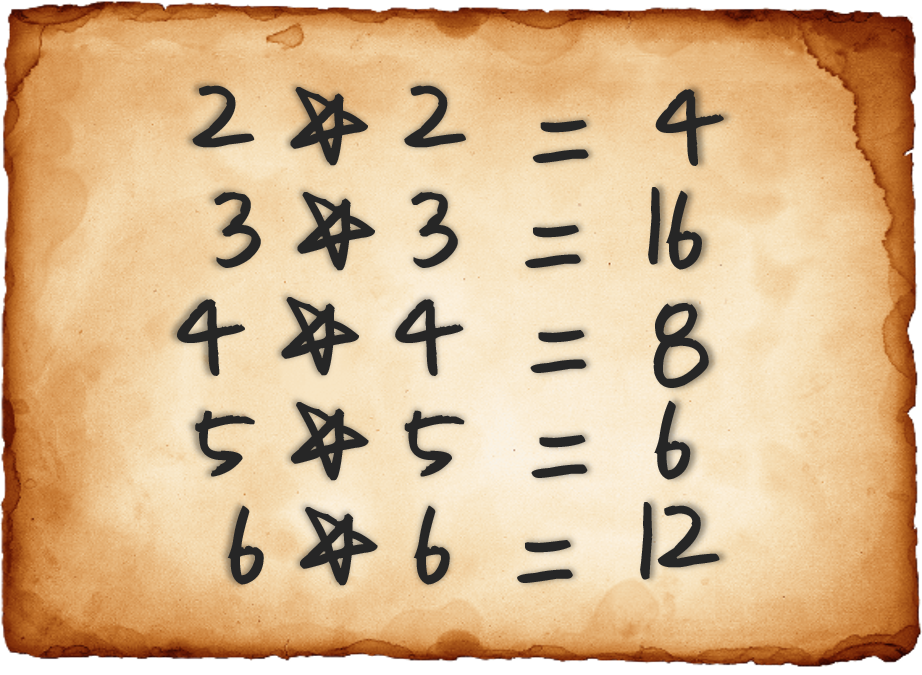 2 ☆ 2 = 4
3 ☆ 3 = 16
4 ☆ 4 = 8
5 ☆ 5 = 6
6 ☆ 6 = 12